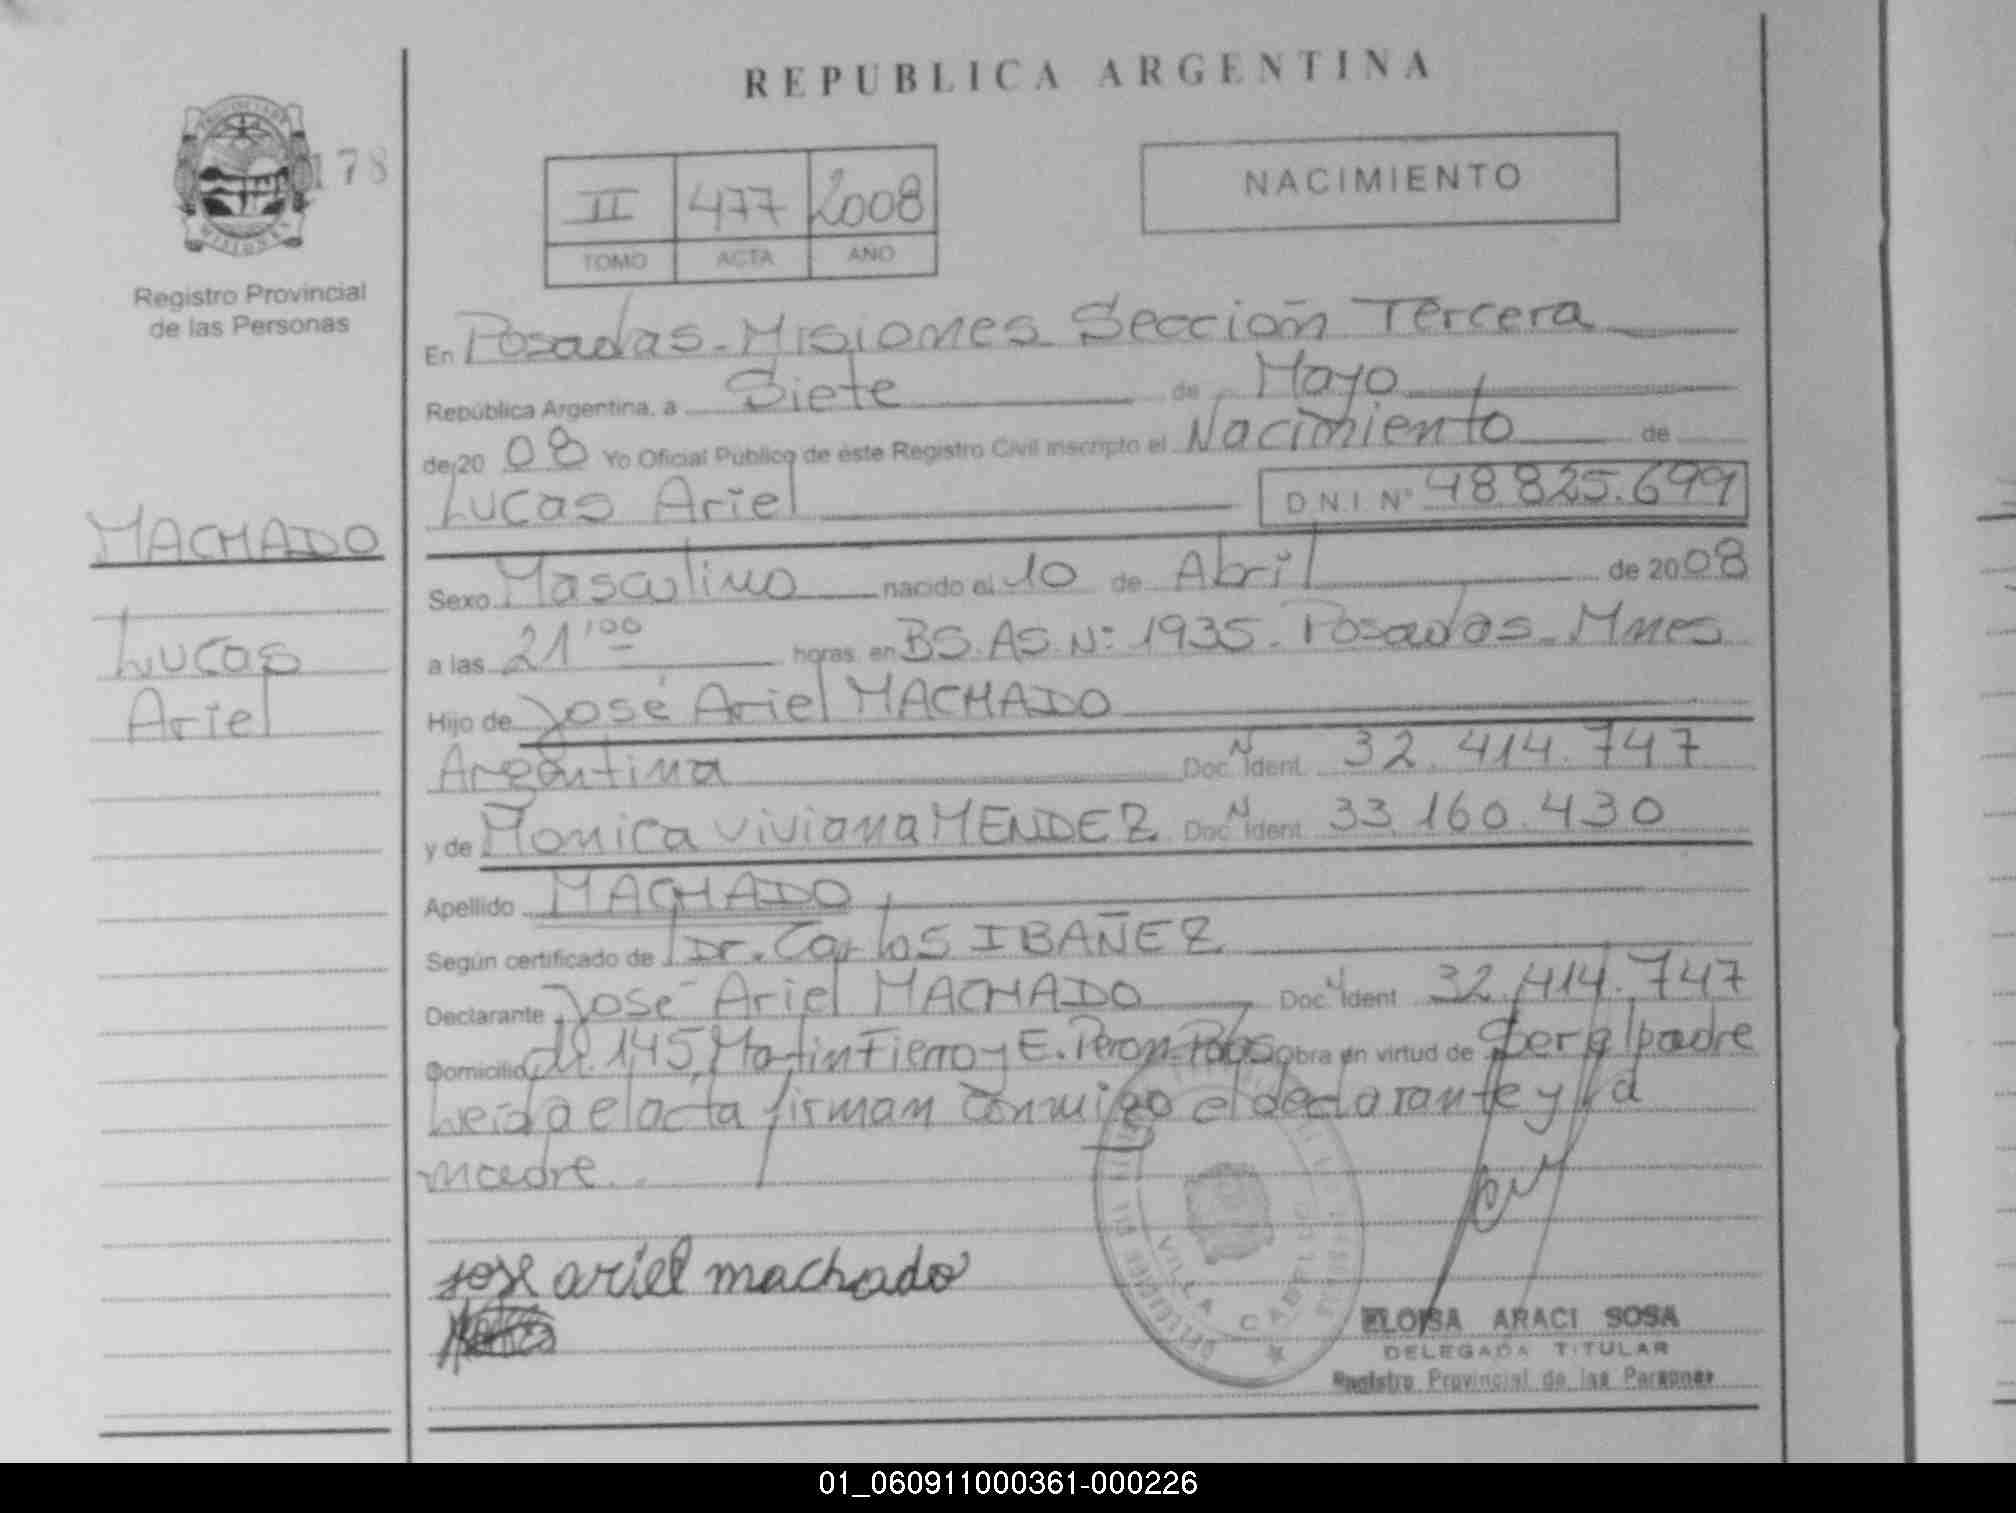 REPUBLICA ARGENTINA
178
MISIONES
Registro Provincial
de las Personas
II 477 2008
TOMO ACTA AÑO
NACIMIENTO
En Posadas - Misiones Sección Tercera
República Argentina, a Siete de Mayo
de 20 08 Yo Oficial Público de éste Registro Civil inscripto el Nacimiento de
Lucas Ariel D.N.I. N° 48.825.699
MACHADO
Lucas
Ariel
Sexo Masculino nacido el 10 de Abril de 2008
a las 21'00 horas en BS.AS.N: 1935. Posadas - Mnes
Hijo de José Ariel MACHADO
Argentina Doc. N Ident. 32.414.747
y de Monica Viviana MENDEZ Doc. N Ident. 33.160.430
Apellido MACHADO
Según certificado de Dr. Carlos IBAÑEZ
Declarante José Ariel MACHADO Doc. Ident. 32.414.747
Domicilio 145, Martin Fierro y E. Peron - Pdas obra en virtud de Ser el padre
Leida el acta firman conmigo el declarante y la
madre.
jose ariel machado
VILLA CABELLO
ELOISA ARACI SOSA
DELEGADA TITULAR
Registro Provincial de las Personas
01_060911000361-000226